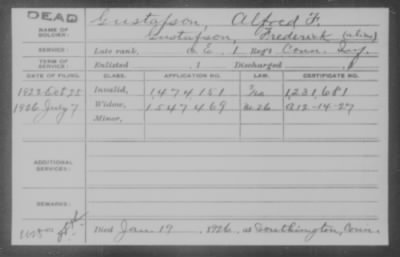 DEAD
NAME OF SOLDIER: Gustafson, Alfred F.
Gustafson, Frederick (alias)
SERVICE: Late rank, Co E, 1 Reg't Conn. Inf.
TERM OF SERVICE: Enlisted , 1 Discharged , 1
DATE OF FILING. CLASS. APPLICATION NO. LAW. CERTIFICATE NO.
Invalid, 1,474,151 1,231,681
1926 July 7 Widow, 1547469 A12-14-27
Minor,
ADDITIONAL SERVICES:
REMARKS:
Died Jan. 19, 1926, at Southington, Conn.